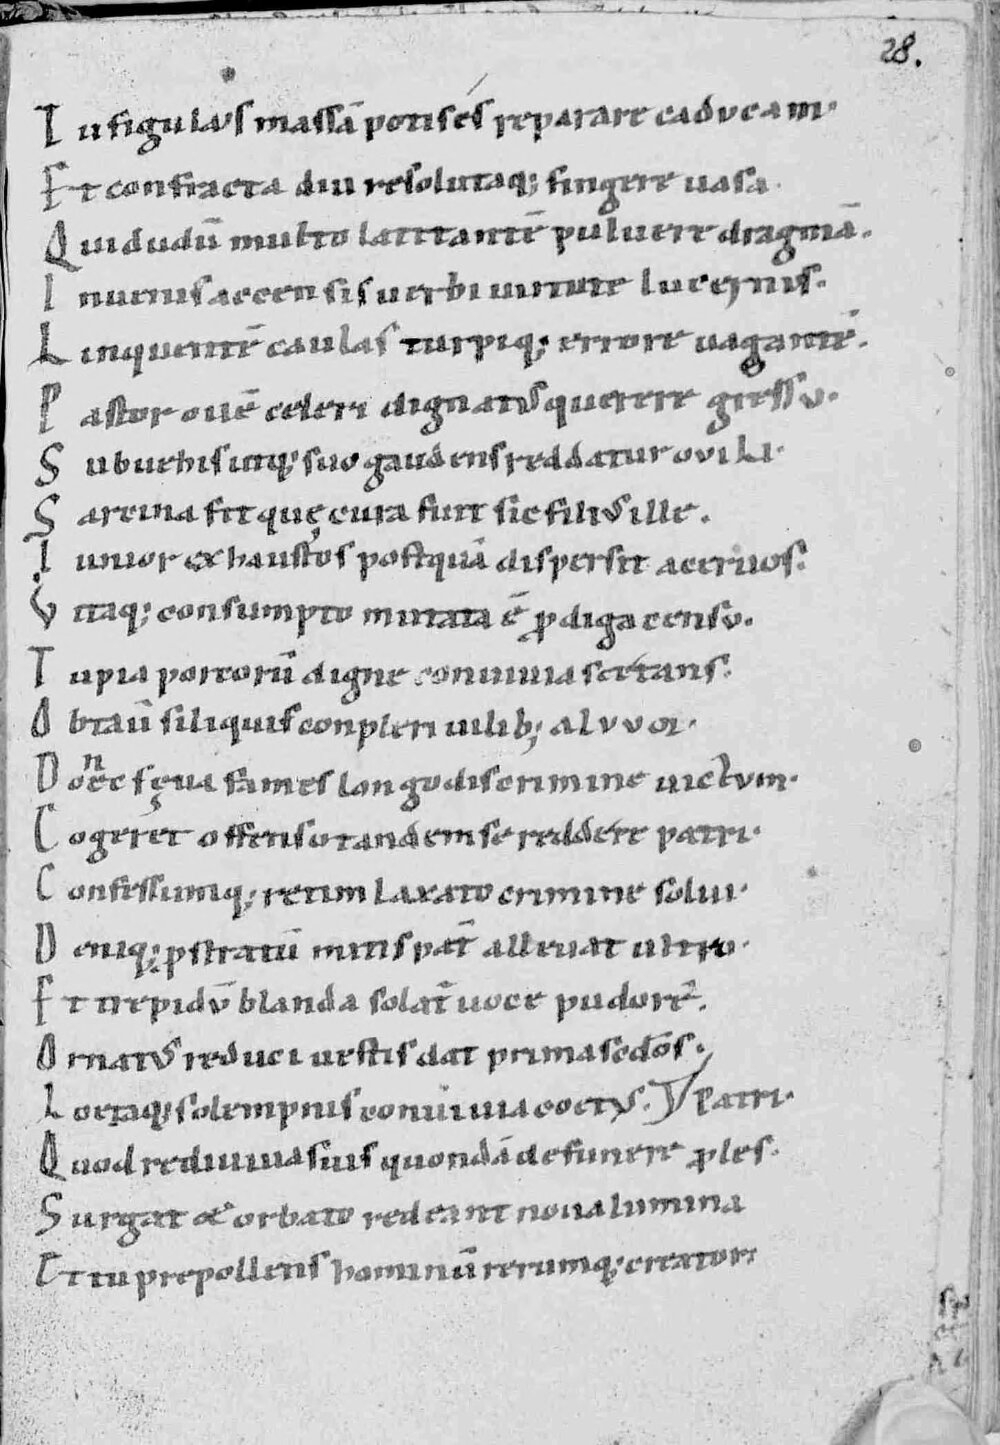 28.
Tu figulus massā potis es reparare caducam.
Et confracta diu resolutaq; fingere uasa.
Qui dudū multo latitantē puluere dragmā.
Inuenis accensis uerbi uirtute lucernis.
Linquentē caulas turpiq; errore uagantē.
Pastor ouē celeri dignatus querere gressu.
Sub uehis utq; suo gaudens reddatur ouili.
Sarcina fit quę cura fuit sic filius ille.
Iunior exhaustos postquā dispersit aceruos.
Vitaq; consumpto mutata ē prodiga censu.
Tu pia porcorū digne conuiuia sectans.
Obtaū siliquis conpleri uilib; aluuor.
Donec sęua fames longo discrimine uictum.
Cogeret offenso tandem se reddere patri.
Confessumq; retim laxato crimine solui.
Deniq; pstratū mitis pat̄ alleuat ultro.
Et trepidū blanda solat̄ uoce pudorē.
Ornatus reduci uestis dat prima sodōs.
Loetaq; solempnis conuiuia coetus. patri.
Quod rediuiua suis quondā de funere proles.
Surgat & orbato redeant noua lumina
Et tu prepollens hominū rerumq; creator